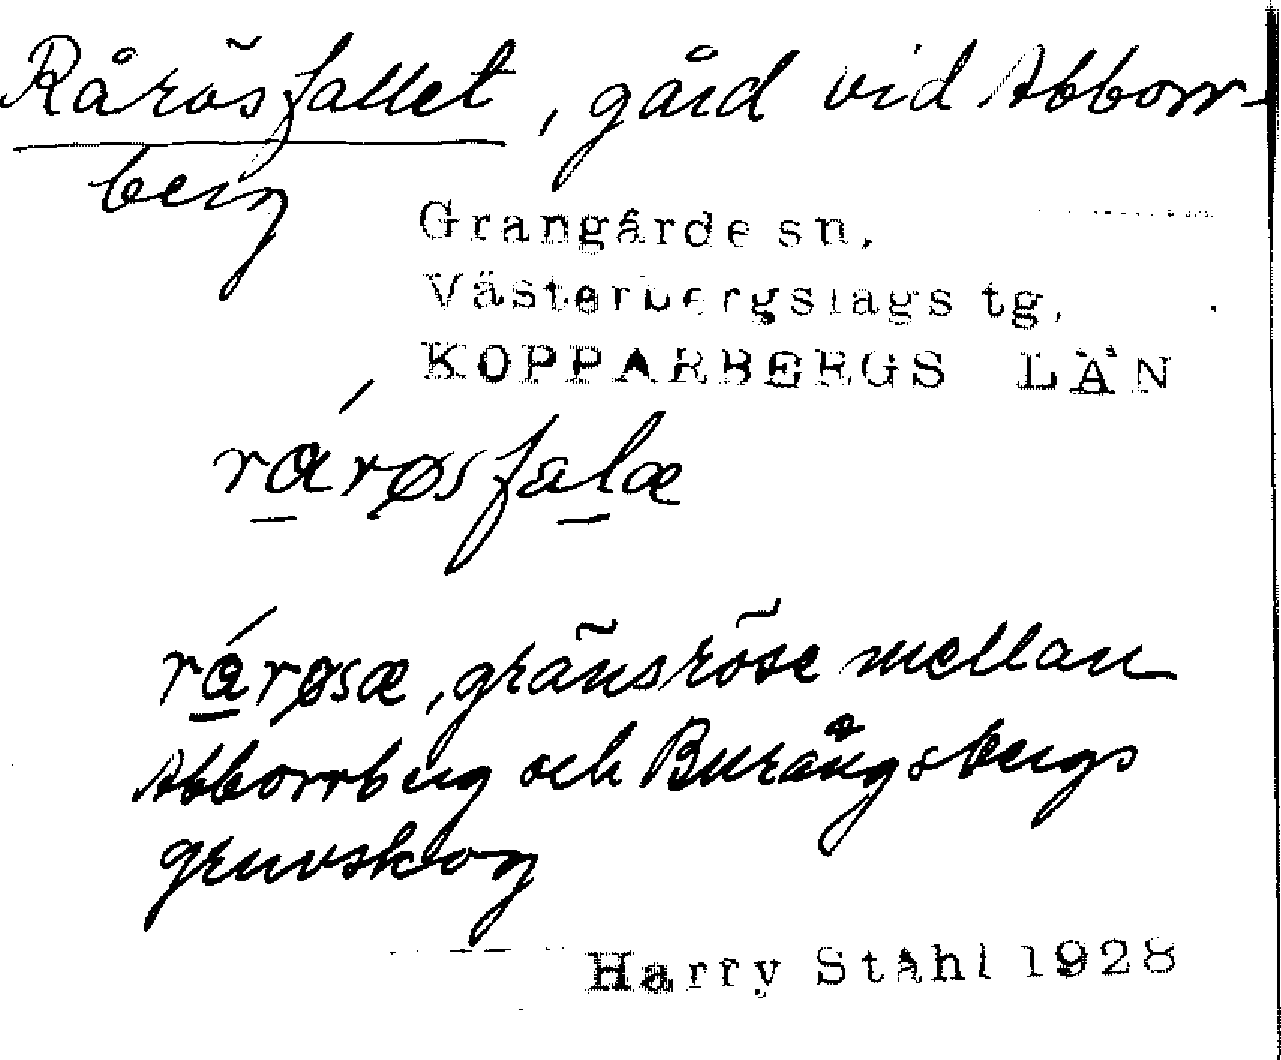 Rårösfallet, gård vid Abborr-
berg
Grangärde sn.
Västerbergslags tg.
KOPPARBERGS LÄN
rárøsfalæ
rárøsæ, gränsröse mellan
Abborrberg och Burängsbergs
gruvskog
Harry Ståhl 1928